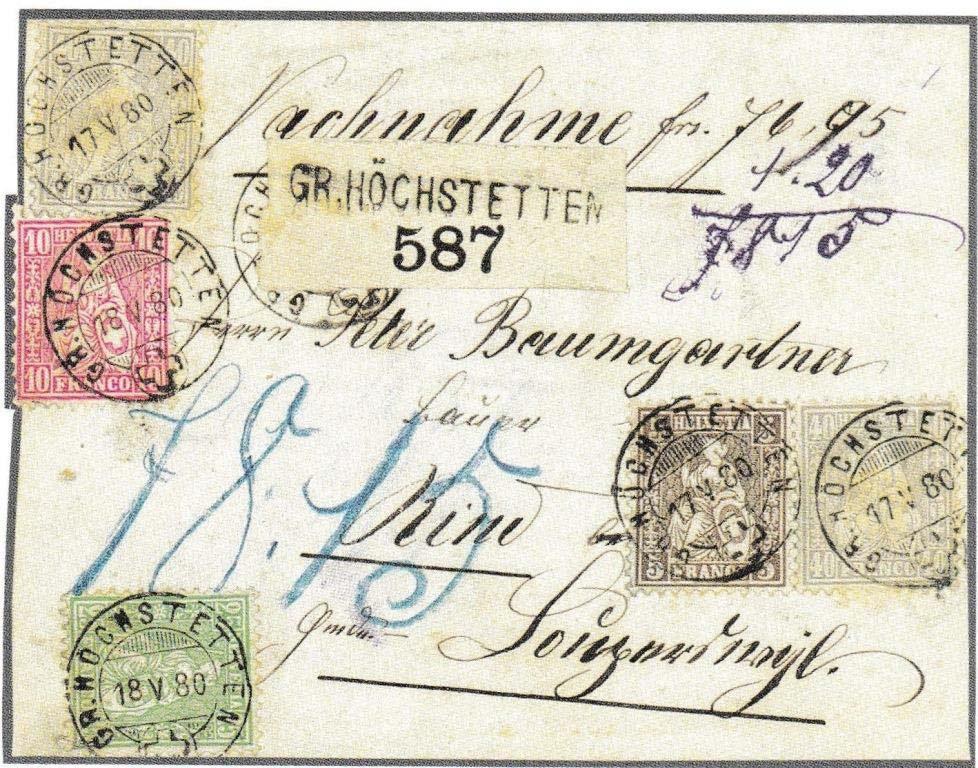 GR. HÖCHSTETTEN
17 V 80
Nachnahme frs. 76,95
1.20
78 15
GR. HÖCHSTETTEN
587
10 HELVETIA 10
GR. HÖCHSTETTEN
18 V 80
10 FRANCO 10
Herrn Peter Baumgartner
Bauer
78.15
HELVETIA
GR. HÖCHSTETTEN
17 V 80
5 FRANCO 5
40
GR. HÖCHSTETTEN
17 V 80
40 40
Ried
Gmde.
Lauperswyl.
GR. HÖCHSTETTEN
18 V 80